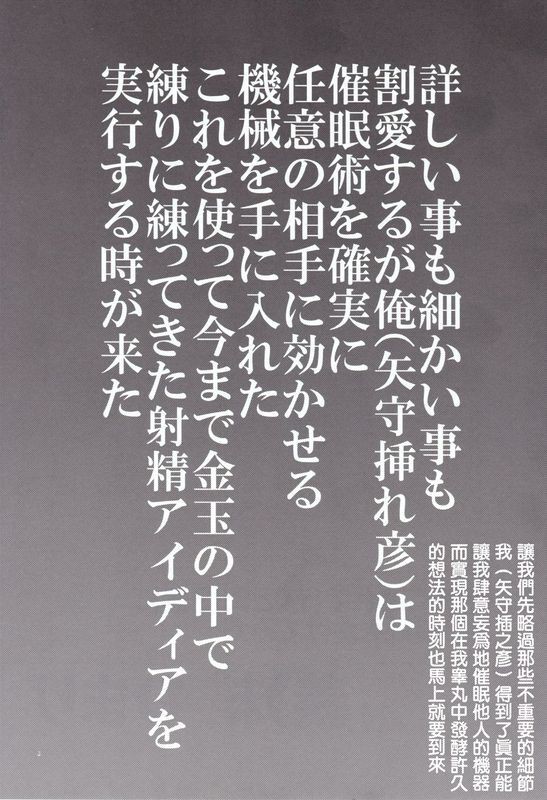 詳しい事も細かい事も
割愛するが俺(矢守挿れ彦)は
催眠術を確実に
任意の相手に効かせる
機械を手に入れた
これを使って今まで金玉の中で
練りに練ってきた射精アイディアを
実行する時が来た
讓我們先略過那些不重要的細節
我(矢守插之彥)得到了眞正能
讓我肆意妄爲地催眠他人的機器
而實現那個在我睾丸中發酵許久
的想法的時刻也馬上就要到來